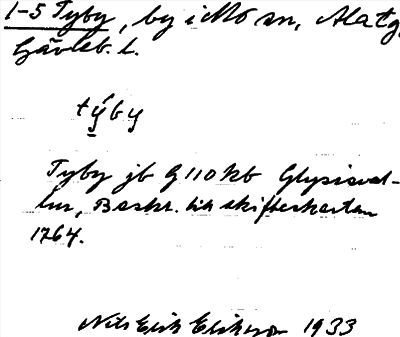 1-5 Tyby, by i Mo sn, Ala tg,
Gävleb. l.
týby
Tyby jb G 110 kb Glysisval-
lur, Beskr. till skifteskartan
1764.
Nils Erik Eriksson 1933